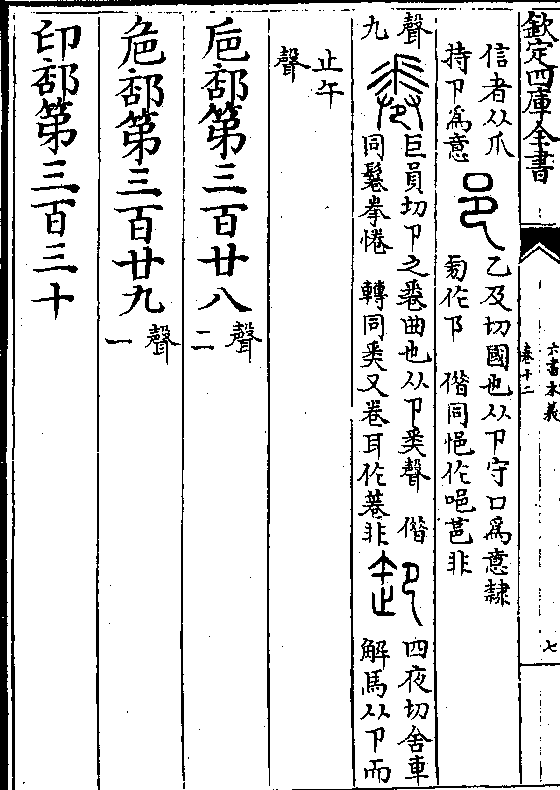 欽定四庫全書
六書本義
卷十二
七
信者从爪
持卩為意
邑
乙及切國也从卩守囗為意隸
㔾偕同悒作唈莒非
聲
九
巨員切卩之卷曲也从卩𢍏聲 偕
同鬈拳惓 轉同𢍏又卷耳作菤非
卸
四夜切舍車
解馬从卩而
止午
聲
巵部第三百廿八
聲
二
危部第三百廿九
聲
一
印部第三百三十